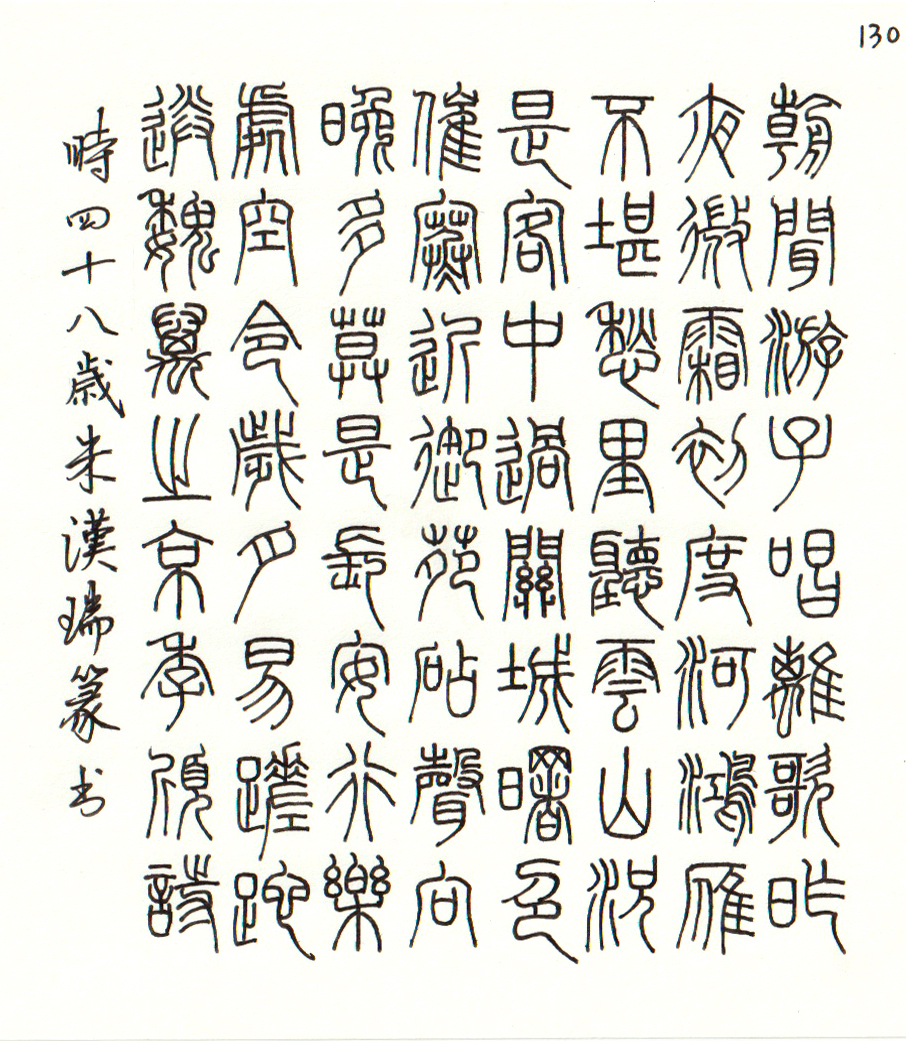 130
朝聞游子唱離歌昨
夜微霜初度河鴻雁
不堪愁里聽雲山況
是客中過關城曙色
催寒近御苑砧聲向
晚多莫是長安行樂
處空令歲月易蹉跎
送魏萬之京李頎詩
時四十八歲朱漢瑞篆书